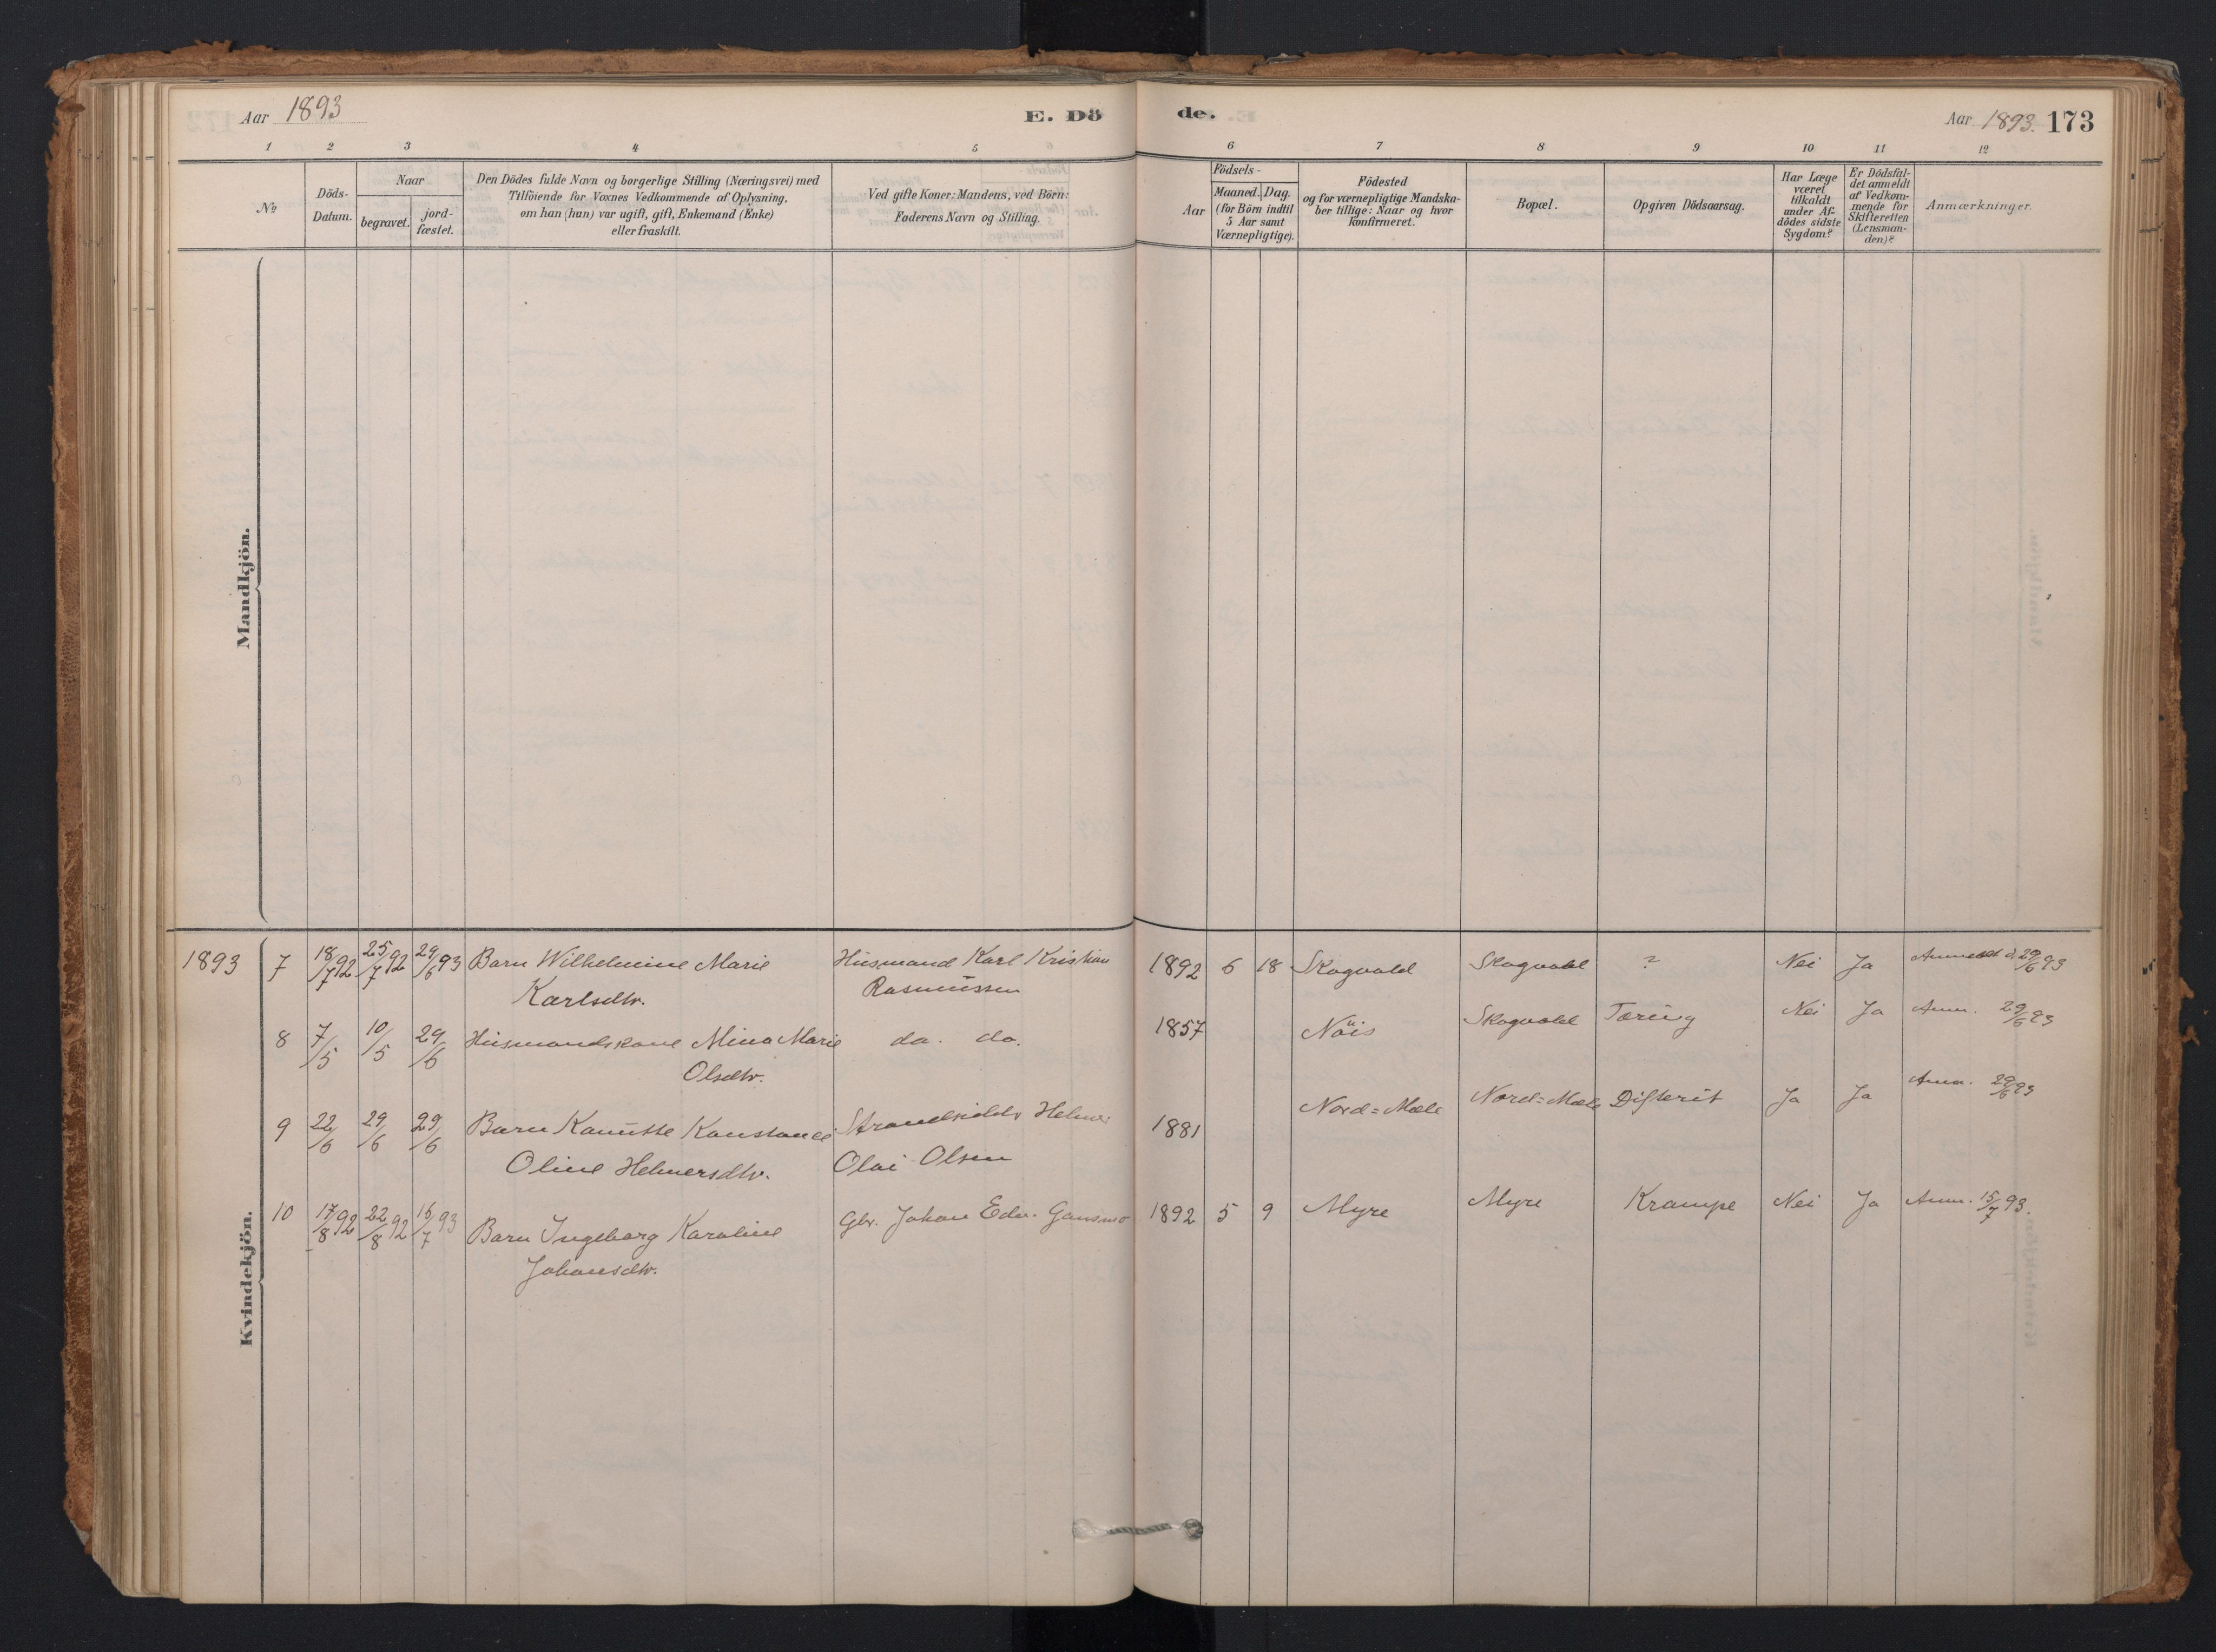 Aar 1893
E. Dö
de.
Aar 1893. 173
1 2 3 4 5 6 7 8 9 10 11 12
No
Döds-
Datum.
Naar
begravet.
jord-
fæstet.
Den Dödes fulde Navn og borgerlige Stilling (Næringsvei) med
Tilföiende for Voxnes Vedkommende af Oplysning,
om han (hun) var ugift, gift, Enkemand (Enke)
eller fraskilt.
Ved gifte Koner: Mandens, ved Börn:
Faderens Navn og Stilling.
Aar
Födsels-
Maaned. Dag.
(for Börn indtil
5 Aar samt
Værnepligtige).
Födested
og for værnepligtige Mandska-
ber tillige: Naar og hvor
konfirmeret.
Bopæl.
Opgiven Dödsaarsag.
Har Læge
været
tilkaldt
under Af-
dödes sidste
Sygdom?
Er Dödsfal-
det anmeldt
af Vedkom-
mende for
Skifteretten
(Lensman-
den)?
Anmærkninger.
Mandkjön.
Kvindekjön.
1893 7 18/7 92 25/7 92 29/6 93 Barn Wilhelmine Marie Husmand Karl Kristian 1892 6 18 Skogvold Skogvold ? Nei Ja Anmeldt d. 29/6 93
Karlsdtr. Rasmussen
8 7/5 10/5 29/6 Husmandskone Mina Marie do. do. 1857 Nöis Skogvold Tæring Nei Ja Anm. 29/6 93
Olsdtr.
9 22/6 29/6 29/6 Barn Kanutte Konstance Strandsidder Helmer 1881 Nord=Mæle Nord=Mæle Difterit Ja Ja Anm. 29/6 93
Oline Helmersdtr. Olai Olsen
10 17/8 92 22/8 92 16/7 93 Barn Ingeborg Karoline Gbr. Johan Edv. Gansmo 1892 5 9 Myre Myre Krampe Nei Ja Anm. 15/7 93.
Johansdtr.